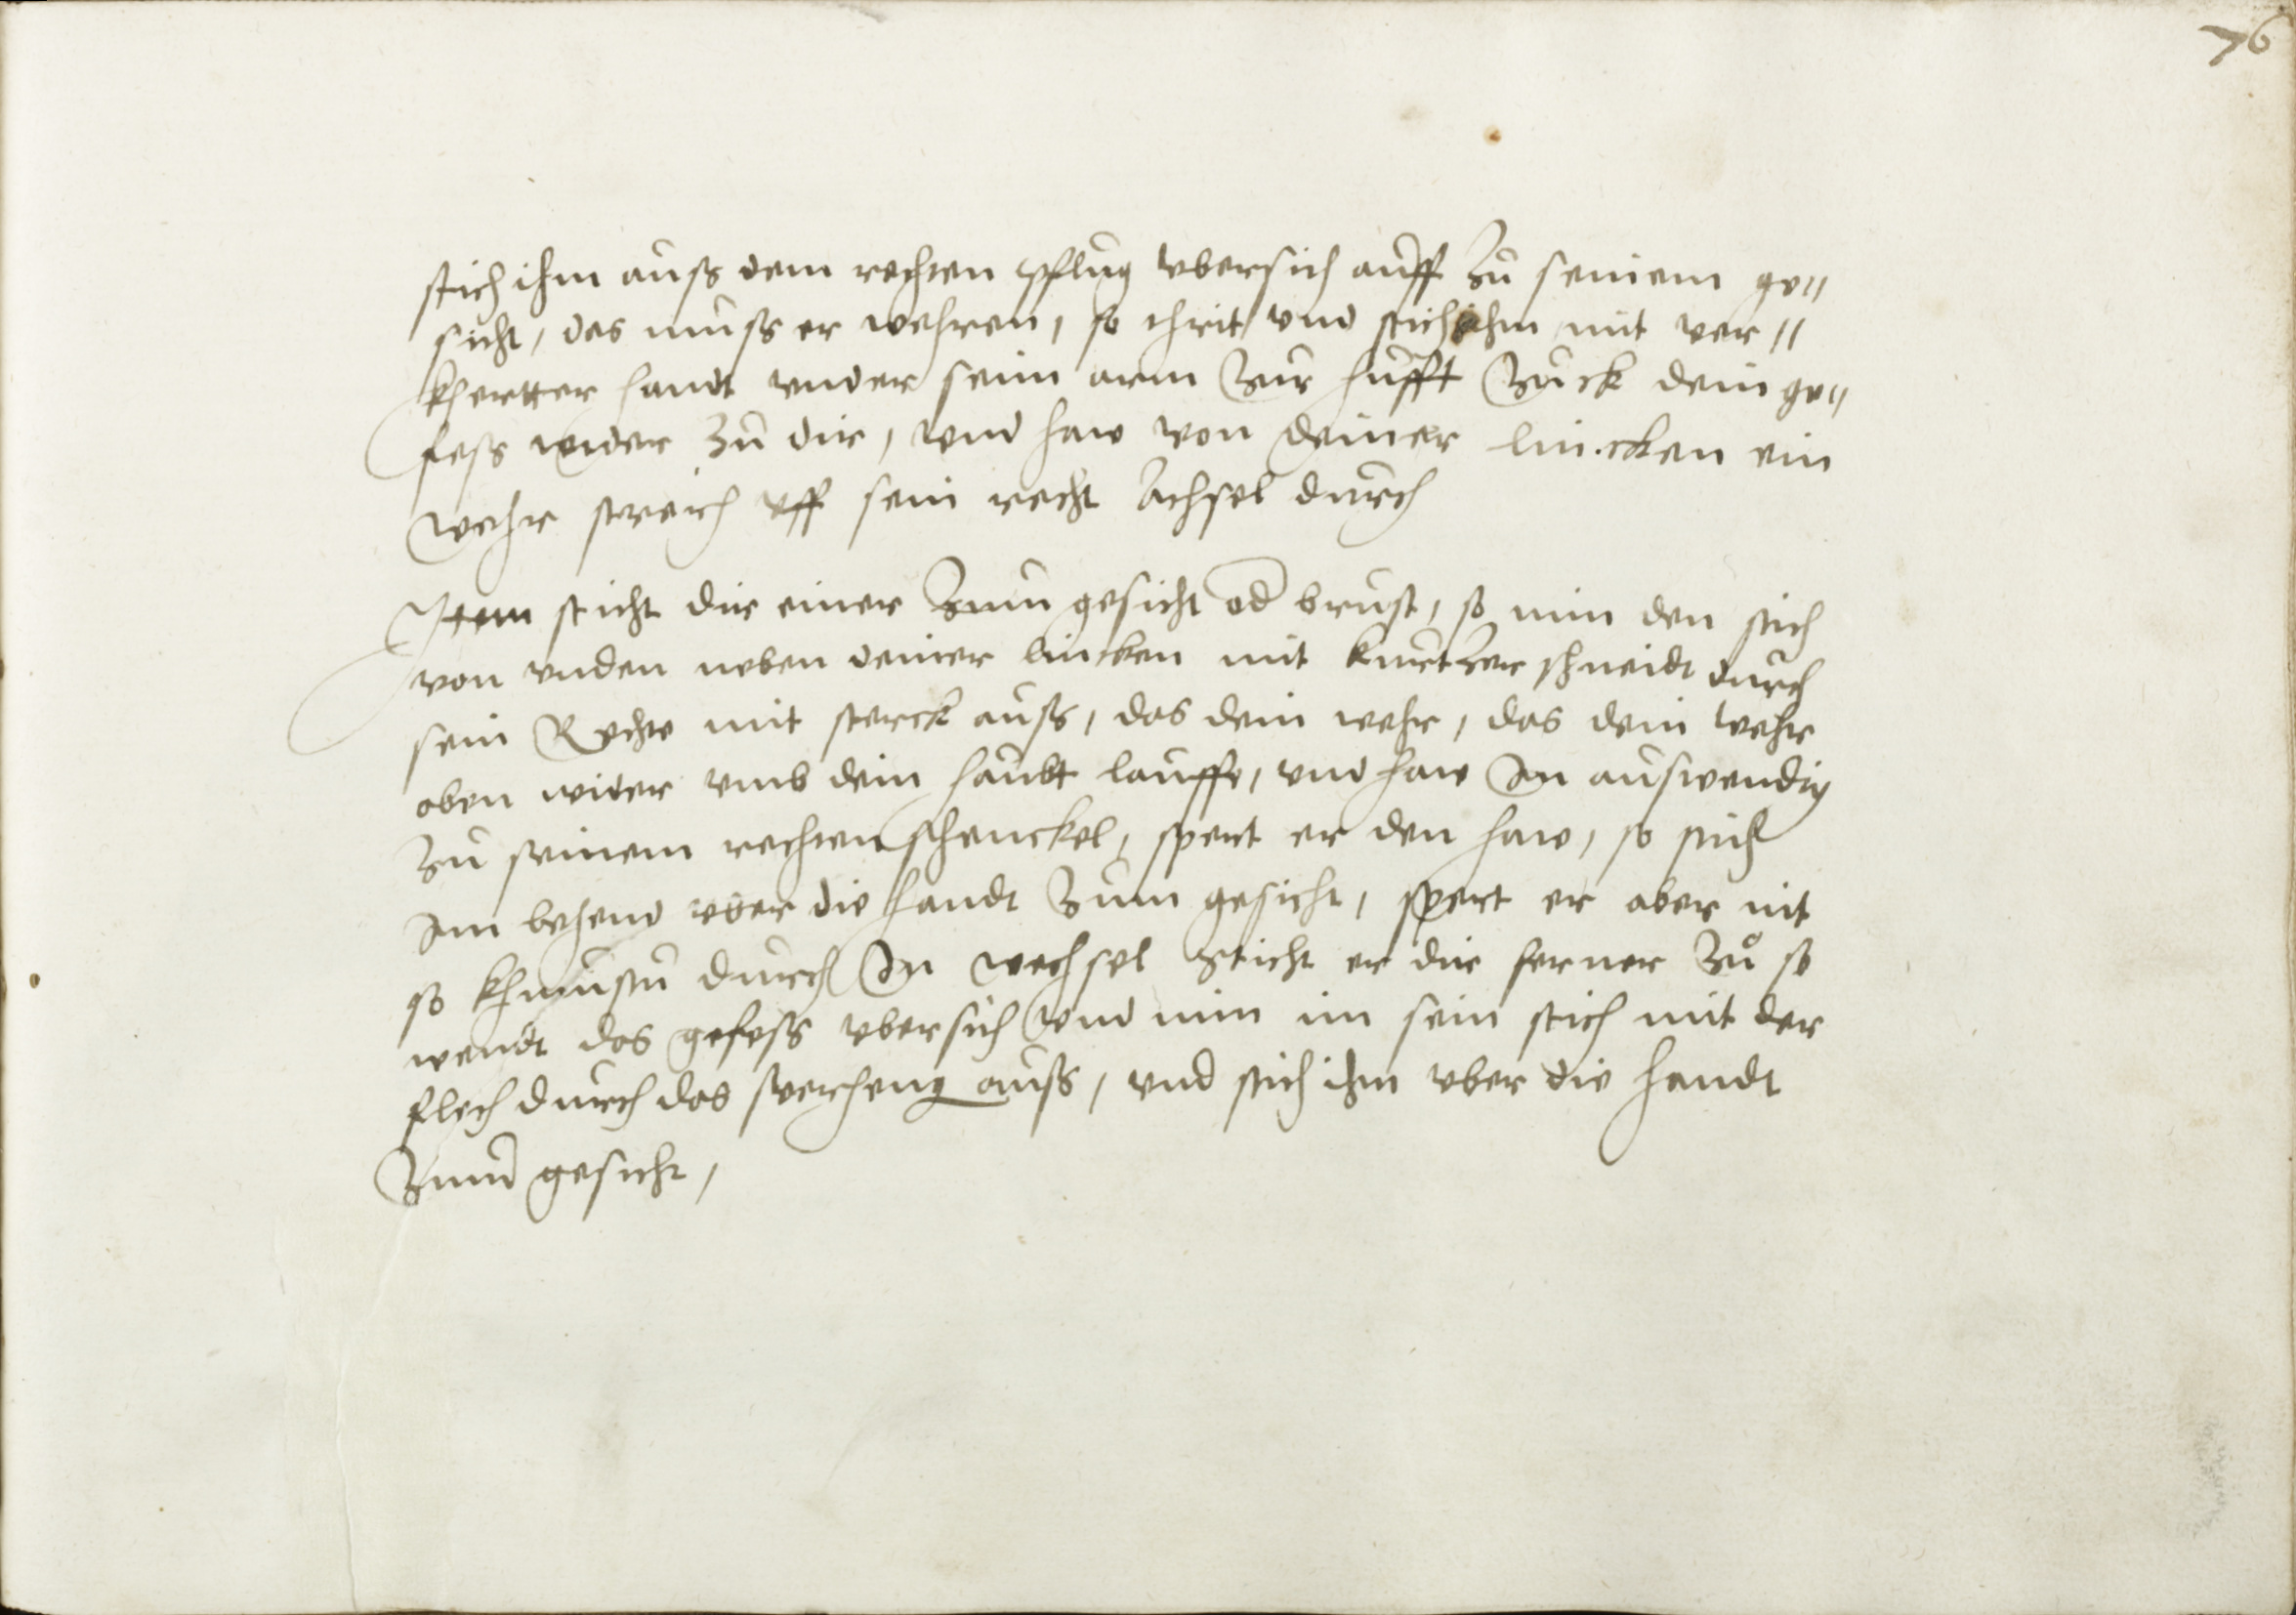 76
stich ihm auß dem rechten pflug vbersich auff zu seinem ge〃
sicht, das muß er wehren, so thrit vnd stich ihm mit ver〃
khertter handt vnder seim arm zur hüfft zuck dein ge〃
feß wider zu dir, vnd haw von deiner lincken ein
wehr streich vff sein recht achsel durch
Item sticht dir einer zum gesicht od brust, so nim den stich
von vnden neben deiner lincken mit kurtzer schneidt durch
sein Rechte mit sterck auß, das dein wehr, das dein wehr
oben wider vmb dein haubt lauffe, vnd haw Im auswendig
zu seinem rechten schenckel, spert er den haw, so stich
Im behend vber die handt zum gesicht, spert er aber nit
so durch Im wechsel sticht er dir ferner zů so
wendt das gefeß vbersich vnd nim im sein stich mit der
flech durch das auß, vnd stich ihm vber die handt
zum gesicht,